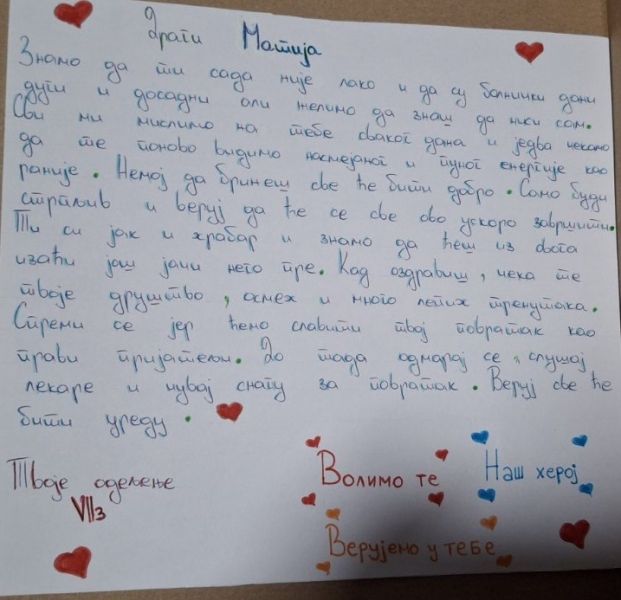 Драги Матија
Знамо да ти сада није лако и да су болнички дани
дуги и досадни али желимо да знаш да ниси сам.
Сви ми мислимо на тебе сваког дана и једва чекамо
да те поново видимо насмејаног и пуног енергије као
раније. Немој да бринеш све ће бити добро. Само буди
стрпљив и веруј да ће се све ово ускоро завршити.
Ти си јак и храбар и знамо да ћеш из овога
изаћи још јачи него пре. Кад оздравиш, чека те
твоје друштво, осмех и много лепих тренутака.
Спреми се јер ћемо славити твој повратак као
прави пријатељи. До тада одмарај се, слушај
лекаре и чувај снагу за повратак. Веруј све ће
бити уреду.
Твоје одељење
VII3
Волимо те
Наш херој
Верујемо у тебе